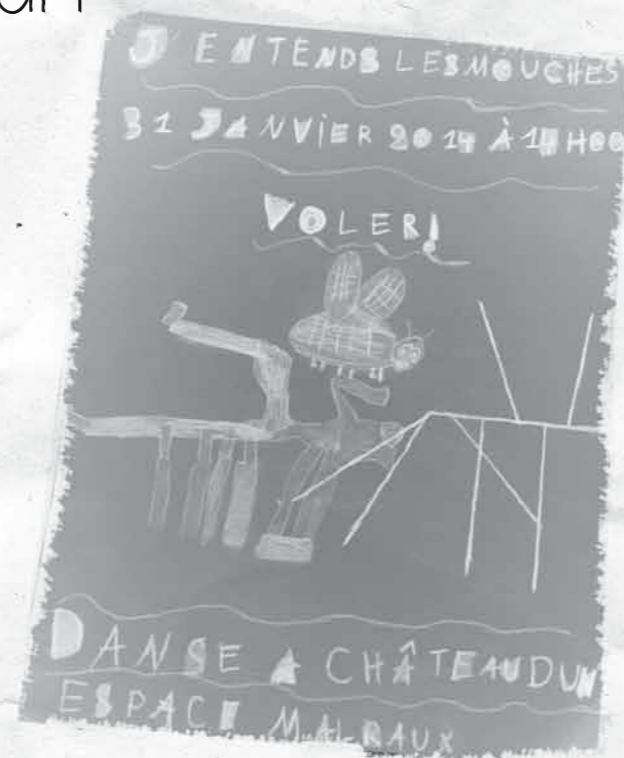 J'ENTENDS LES MOUCHES
31 JANVIER 2014 À 14H00
VOLER!
DANSE A CHÂTEAUDUN
ESPACE MALRAUX